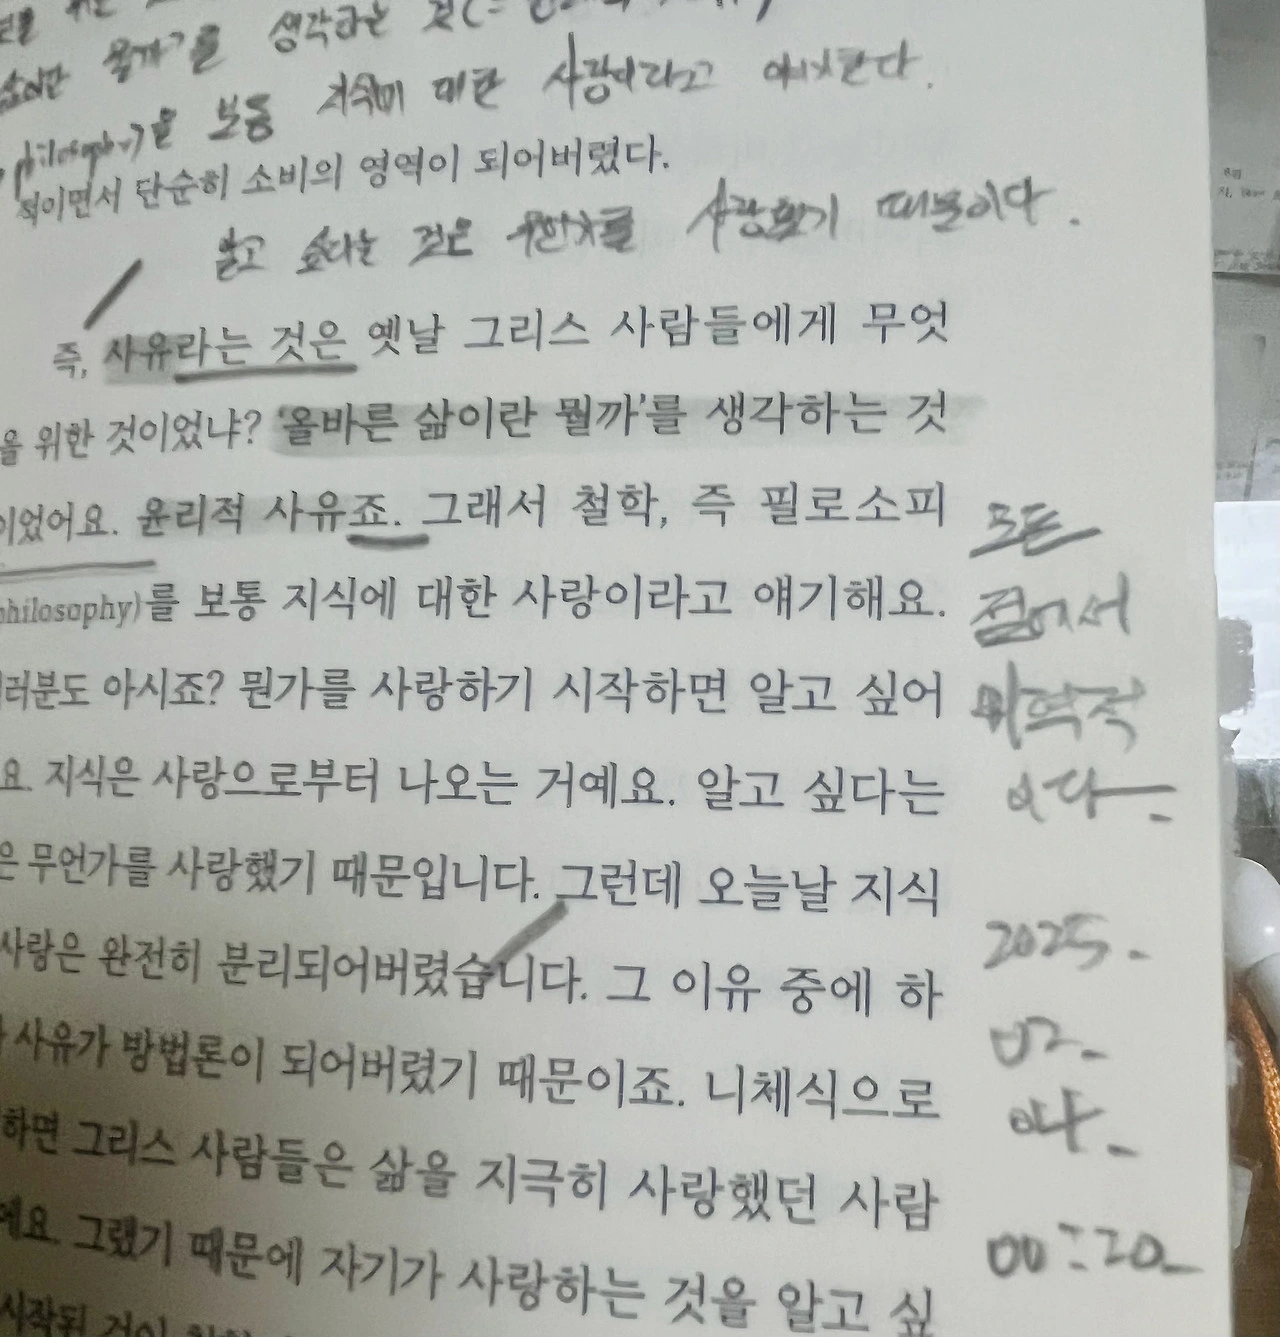 를 생각하는 것
보통 지식에 대한 사랑이라고 얘기한다.
philosophy)을
적이면서 단순히 소비의 영역이 되어버렸다.
알고 싶다는 것은 무언가를 사랑했기 때문이다.
즉, 사유라는 것은 옛날 그리스 사람들에게 무엇
을 위한 것이었냐? '올바른 삶이란 뭘까'를 생각하는 것
이었어요. 윤리적 사유죠. 그래서 철학, 즉 필로소피
philosophy)를 보통 지식에 대한 사랑이라고 얘기해요.
러분도 아시죠? 뭔가를 사랑하기 시작하면 알고 싶어
요. 지식은 사랑으로부터 나오는 거예요. 알고 싶다는
은 무언가를 사랑했기 때문입니다. 그런데 오늘날 지식
사랑은 완전히 분리되어버렸습니다. 그 이유 중에 하
사유가 방법론이 되어버렸기 때문이죠. 니체식으로
하면 그리스 사람들은 삶을 지극히 사랑했던 사람
예요. 그랬기 때문에 자기가 사랑하는 것을 알고 싶
시작된 것이
모든
점에서
2025.
02.
00:20